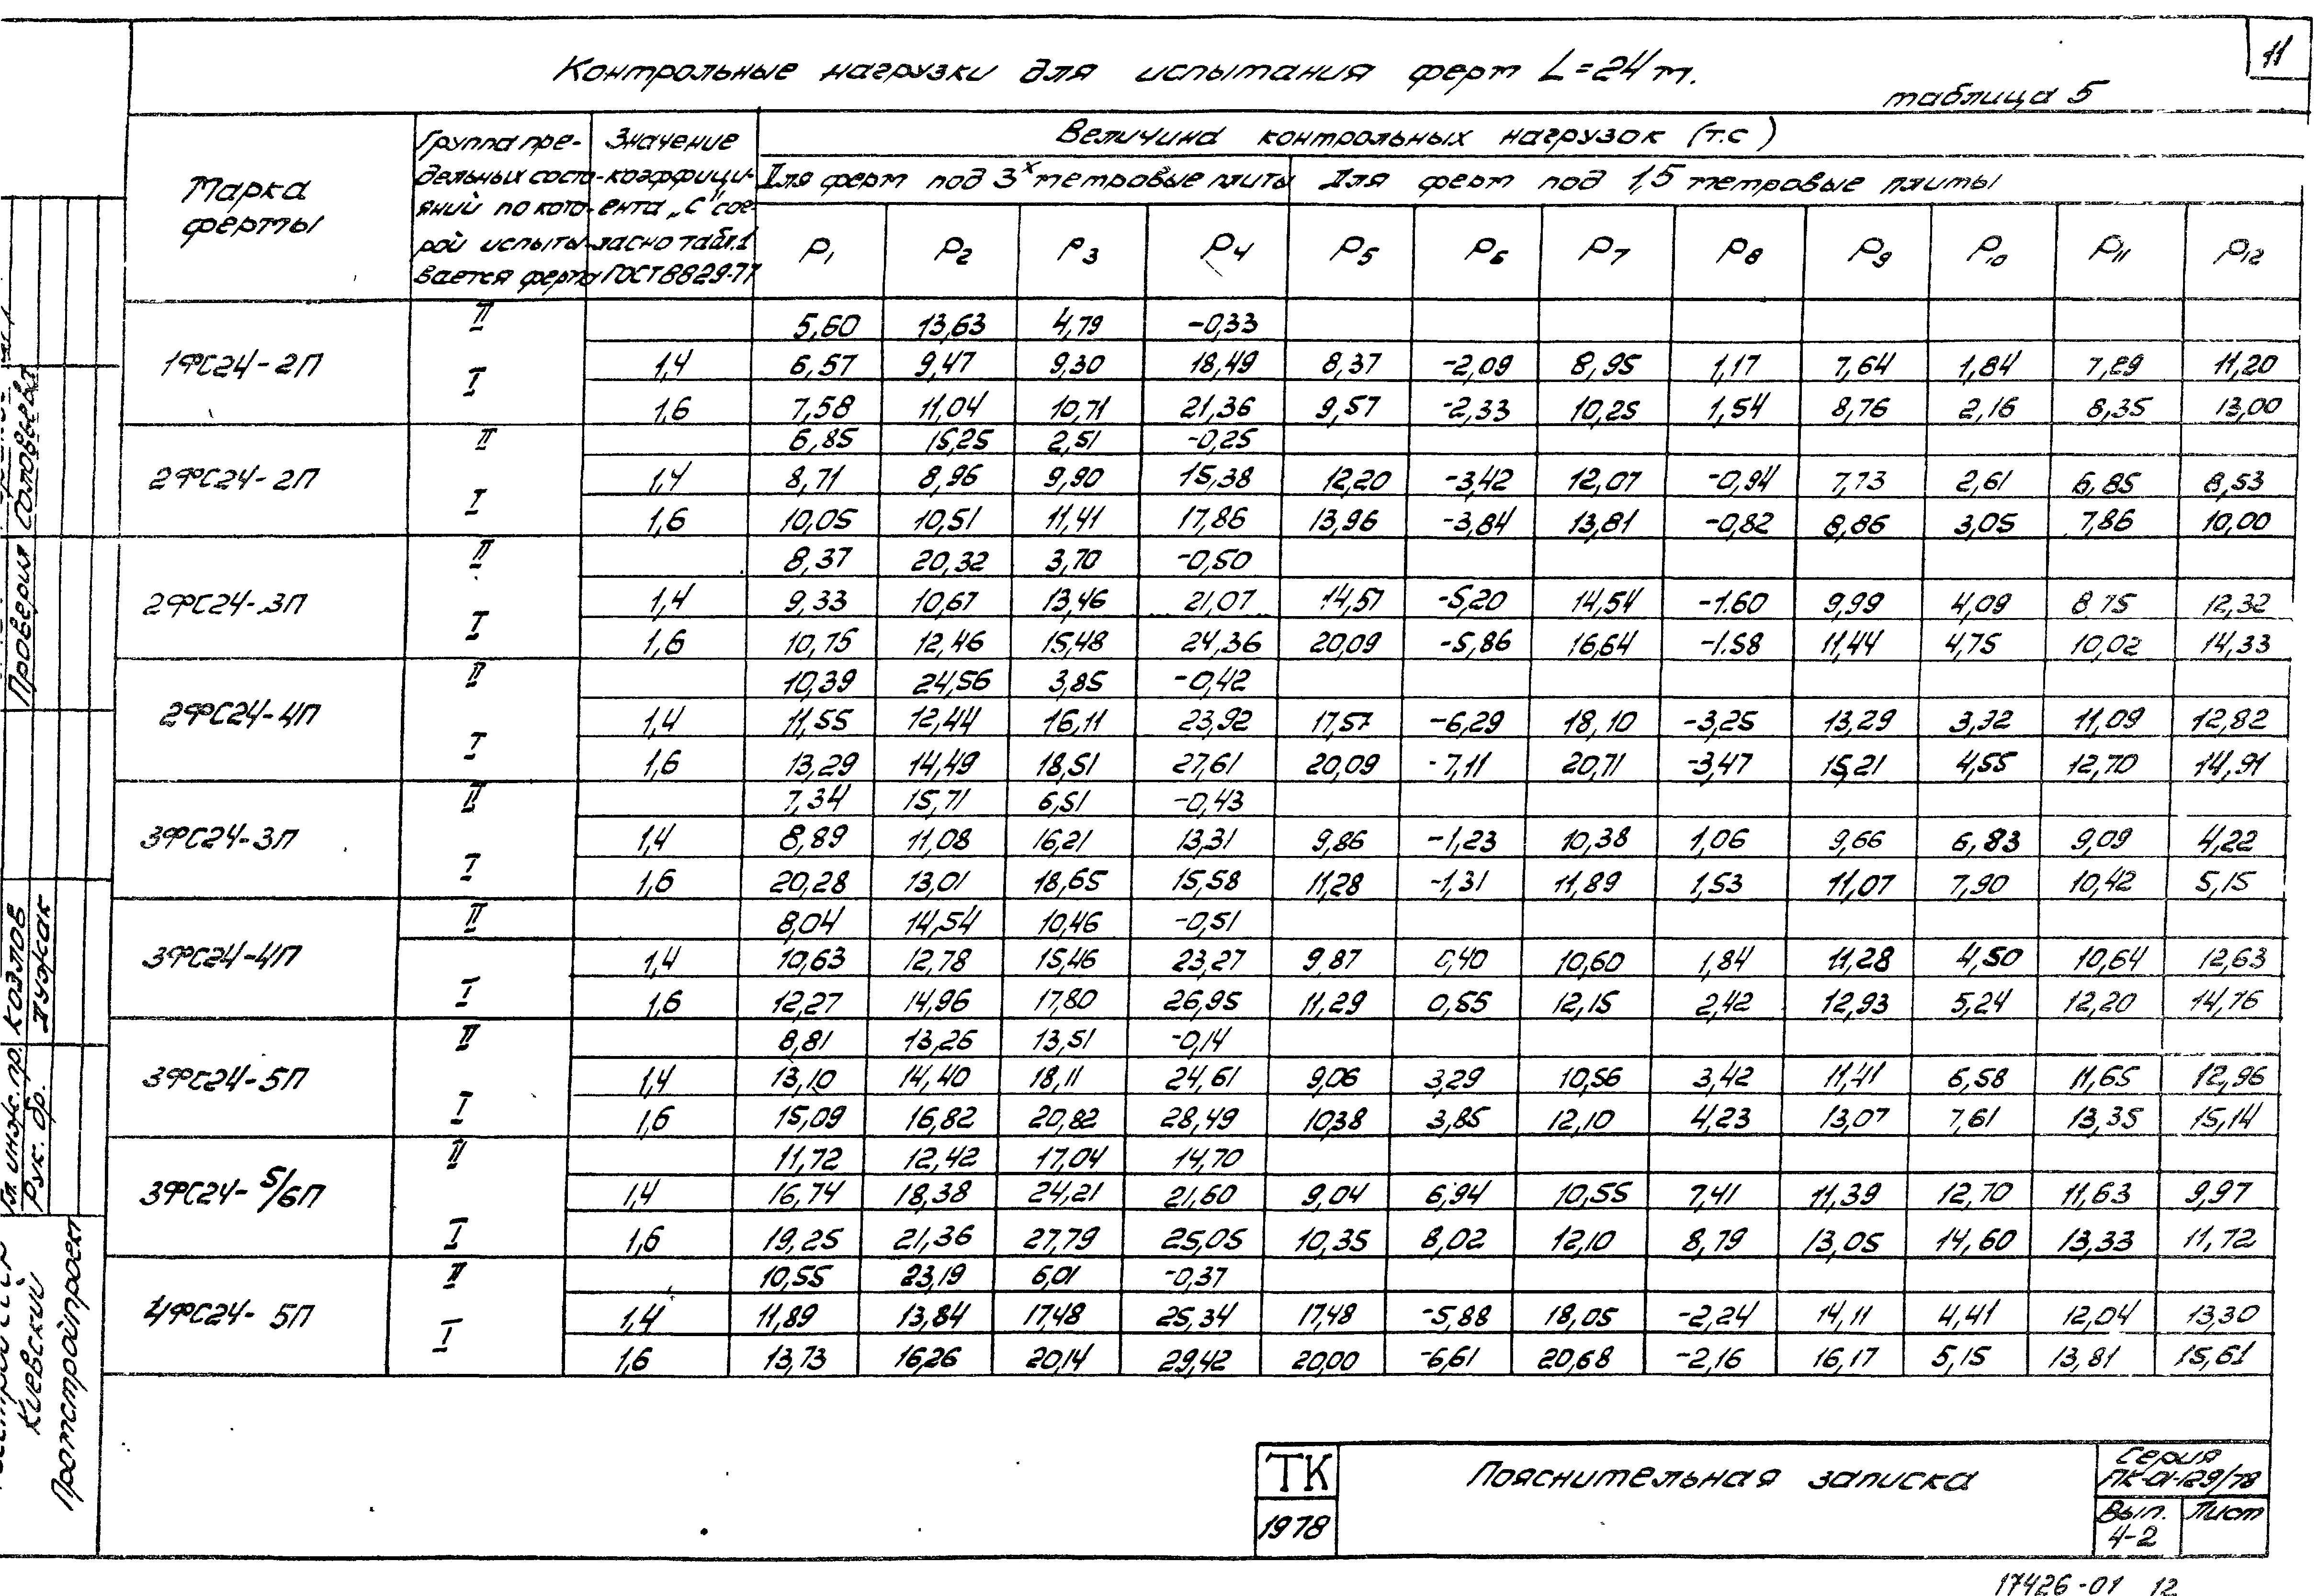 11
Контрольные нагрузки для испытания ферм L=24м.
таблица 5
Марка фермы
Группа пре-
дельных состо-
яний по кото-
рой испыты-
вается ферма
Значение
коэффици-
ента „С" сог-
ласно табл.1
ГОСТ 8829-77
Величина контрольных нагрузок (т.с)
Для ферм под 3х метровые плиты
Для ферм под 1,5 метровые плиты
P1 P2 P3 P4 P5 P6 P7 P8 P9 P10 P11 P12
1ФС24-2П
II 5,60 13,63 4,79 -0,33
I 1,4 6,57 9,47 9,30 18,49 8,37 -2,09 8,95 1,17 7,64 1,84 7,29 11,20
1,6 7,58 11,04 10,71 21,36 9,57 -2,33 10,25 1,54 8,76 2,16 8,35 13,00
2ФС24-2П
II 6,85 15,25 2,51 -0,25
I 1,4 8,71 8,96 9,90 15,38 12,20 -3,42 12,07 -0,94 7,73 2,61 6,85 8,53
1,6 10,05 10,51 11,41 17,86 13,96 -3,84 13,81 -0,82 8,86 3,05 7,86 10,00
2ФС24-3П
II 8,37 20,32 3,70 -0,50
I 1,4 9,33 10,67 13,46 21,07 14,57 -5,20 14,54 -1.60 9,99 4,09 8 75 12,32
1,6 10,75 12,46 15,48 24,36 20,09 -5,86 16,64 -1.58 11,44 4,75 10,02 14,33
2ФС24-4П
II 10,39 24,56 3,85 -0,42
I 1,4 11,55 12,44 16,11 23,92 17,57 -6,29 18,10 -3,25 13,29 3,32 11,09 12,82
1,6 13,29 14,49 18,51 27,61 20,09 -7,11 20,71 -3,47 15,21 4,55 12,70 14,91
3ФС24-3П
II 7,34 15,71 6,51 -0,43
I 1,4 8,89 11,08 16,21 13,31 9,86 -1,23 10,38 1,06 9,66 6,83 9,09 4,22
1,6 20,28 13,01 18,65 15,58 11,28 -1,31 11,89 1,53 11,07 7,90 10,42 5,15
3ФС24-4П
II 8,04 14,54 10,46 -0,51
I 1,4 10,63 12,78 15,46 23,27 9,87 0,40 10,60 1,84 11,28 4,50 10,64 12,63
1,6 12,27 14,96 17,80 26,95 11,29 0,55 12,15 2,42 12,93 5,24 12,20 14,76
3ФС24-5П
II 8,81 13,26 13,51 -0,14
I 1,4 13,10 14,40 18,11 24,61 9,06 3,29 10,56 3,42 11,41 6,58 11,65 12,96
1,6 15,09 16,82 20,82 28,49 10,38 3,85 12,10 4,23 13,07 7,61 13,35 15,14
3ФС24-5/6П
II 11,72 12,42 17,04 14,70
I 1,4 16,74 18,38 24,21 21,60 9,04 6,94 10,55 7,41 11,39 12,70 11,63 9,97
1,6 19,25 21,36 27,79 25,05 10,35 8,02 12,10 8,79 13,05 14,60 13,33 11,72
4ФС24-5П
II 10,55 23,19 6,01 -0,37
I 1,4 11,89 13,84 17,48 25,34 17,48 -5,88 18,05 -2,24 14,11 4,41 12,04 13,30
1,6 13,73 16,26 20,14 29,42 20,00 -6,61 20,68 -2,16 16,17 5,15 13,81 15,61
ТК
1978
Пояснительная записка
Серия
ПК-01-129/78
Вып.
4-2
Лист
17426-01 12
Проверил Соловьева
Гл. инж. пр. Козлов
Рук. бр. Дужак
Киевский
Промстройпроект